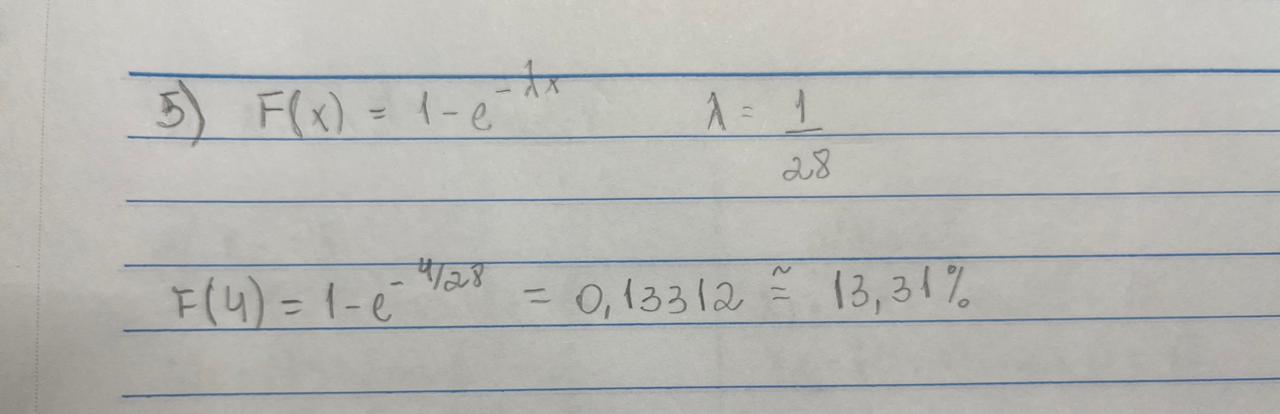 5) F(x) = 1 - e^{-λx} λ = 1/28
F(4) = 1 - e^{-4/28} = 0,13312 ≅ 13,31%